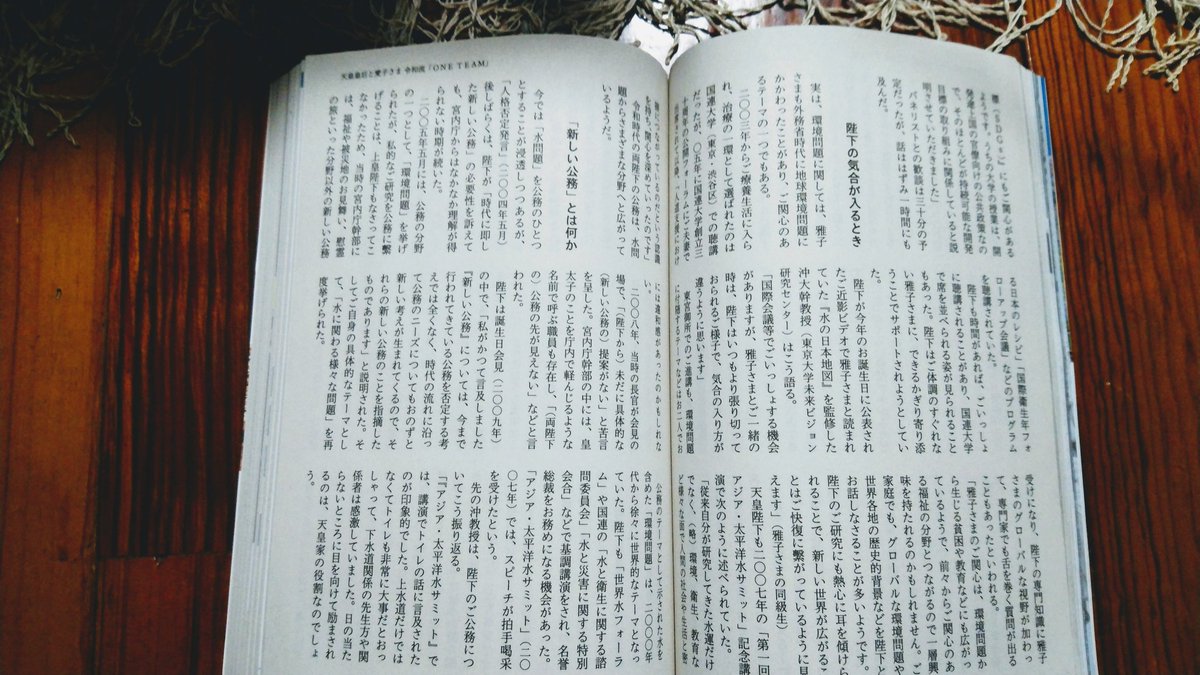 標(SDGs)にもご関心がある
ようです。うちの大学の授業は、開
発途上国の官僚向けの公共政策なの
で、そのほとんどが持続可能な開発
目標の取り組みに関係していると説
明させていただきました」
パネリストとの歓談は三十分の予
定だったが、話ははずみ一時間にも
及んだ。
陛下の気合が入るとき
実は、環境問題に関しては、雅子
さまも外務省時代に地球環境問題に
かかわったことがあり、ご関心のあ
るテーマの一つでもある。
二〇〇三年からご療養生活に入ら
れ、治療の一環として選ばれたのは
国連大学(東京・渋谷区)での聴講
だったが、〇五年に国連大学創立三
十周年の公開フォーラムにご夫妻で
「人道支援におけ
る日本のレシピ」「国際衛生年フォ
ローアップ会議」などのプログラム
を聴講されていた。
陛下も時間があれば、ごいっしょ
に聴講されることがあり、国連大学
で席を並べられる姿が見られること
もあった。陛下はご体調のすぐれな
い雅子さまに、できるかぎり寄り添
うことでサポートされようとしてい
た。
陛下が今年のお誕生日に公表され
たご近影ビデオで雅子さまと読まれ
ていた『水の日本地図』を監修した
沖大幹教授(東京大学未来ビジョン
研究センター)はこう語る。
「国際会議等でごいっしょする機会
がありますが、雅子さまとご一緒の
時は、陛下はいつもより張り切って
おられるご様子で、気合の入り方が
違うように思います」
東宮御所でのご進講も、環境問題
に付随するテーマなどはお二人でお
受けになり、陛下の専門知識に雅子
さまのグローバルな視野が加わっ
て、専門家でも舌を巻く質問が出る
こともあったといわれる。
「雅子さまのご関心は、環境問題か
ら生じる貧困や教育などにも広がっ
ているようで、前々からご関心のあ
る福祉の分野とつながるので一層興
味を持たれるのかもしれません。ご
家庭でも、グローバルな環境問題や
世界各地の歴史的背景などを陛下と
お話しなさることが多いようです。
陛下のご研究にも熱心に耳を傾けら
れることで、新しい世界が広がるこ
とはご快復に繋がっているように見
えます」(雅子さまの同級生)
天皇陛下も二〇〇七年の「第一回
アジア・太平洋水サミット」記念講
演で次のように述べられていた。
「従来自分が研究してきた水運だけ
でなく、(略)環境、衛生、教育な
ど様々な面で人間の社会や生活と密
天皇皇后と愛子さま 令和流「ONE TEAM」
接につながっているのだという認識
を持ち、関心を深めていったのです」
令和時代の両陛下の公務は、水問
題からさまざまな分野へと広がって
いるようだ。
「新しい公務」とは何か
今では「水問題」を公務のひとつ
とすることが浸透しつつあるが、
「人格否定発言」(二〇〇四年五月)
後しばらくは、陛下が「時代に即し
た新しい公務」の必要性を訴えて
も、宮内庁からはなかなか理解が得
られない時期が続いた。
二〇〇五年五月には、公務の分野
の一つとして、「環境問題」を挙げ
られたが、私的なご研究を公務に繋
げることは、上皇陛下もなさってこ
なかったため、当時の宮内庁幹部に
は、福祉や被災地のお見舞い、慰霊
の旅といった分野以外の新しい公務
には違和感があったのかもしれな
い。
二〇〇八年、当時の長官が会見の
場で、「(陛下から)未だに具体的な
(新しい公務の)提案がない」と苦言
を呈した。宮内庁幹部の中には、皇
太子のことを庁内で軽んじるような
名前で呼ぶ職員も存在し、「(両陛下
の)公務の先が見えない」などと言
われた。
陛下は誕生日会見(二〇〇九年)
の中で、「私がかつて言及しました
『新しい公務』については、今まで
行われてきている公務を否定する考
えでは全くなく、時代の流れに沿っ
て公務のニーズについてもおのずと
新しい考えが生まれてくるので、そ
れらの新しい公務のことを指摘した
ものであります」と説明された。そ
してご自身の具体的なテーマとし
て、「水に関わる様々な問題」を再
度挙げられた。
公務のテーマとして示された水を
含めた「環境問題」は、二〇〇〇年
代から徐々に世界的なテーマとなっ
ていた。陛下も「世界水フォーラ
ム」や国連の「水と衛生に関する諮
問委員会」「水と災害に関する特別
会合」などで基調講演をされ、名誉
総裁をお務めになる機会があった。
「アジア・太平洋水サミット」(二〇
〇七年)では、スピーチが拍手喝采
を受けたという。
先の沖教授は、陛下のご公務につ
いてこう振り返る。
「『アジア・太平洋水サミット』で
は、講演でトイレの話に言及された
のが印象的でした。上水道だけでは
なくてトイレも非常に大事だとおっ
しゃって、下水道関係の先生方や関
係者は感激していました。日の当た
らないところに目を向けて励まされ
るのは、天皇家の役割なのでしょ
う。